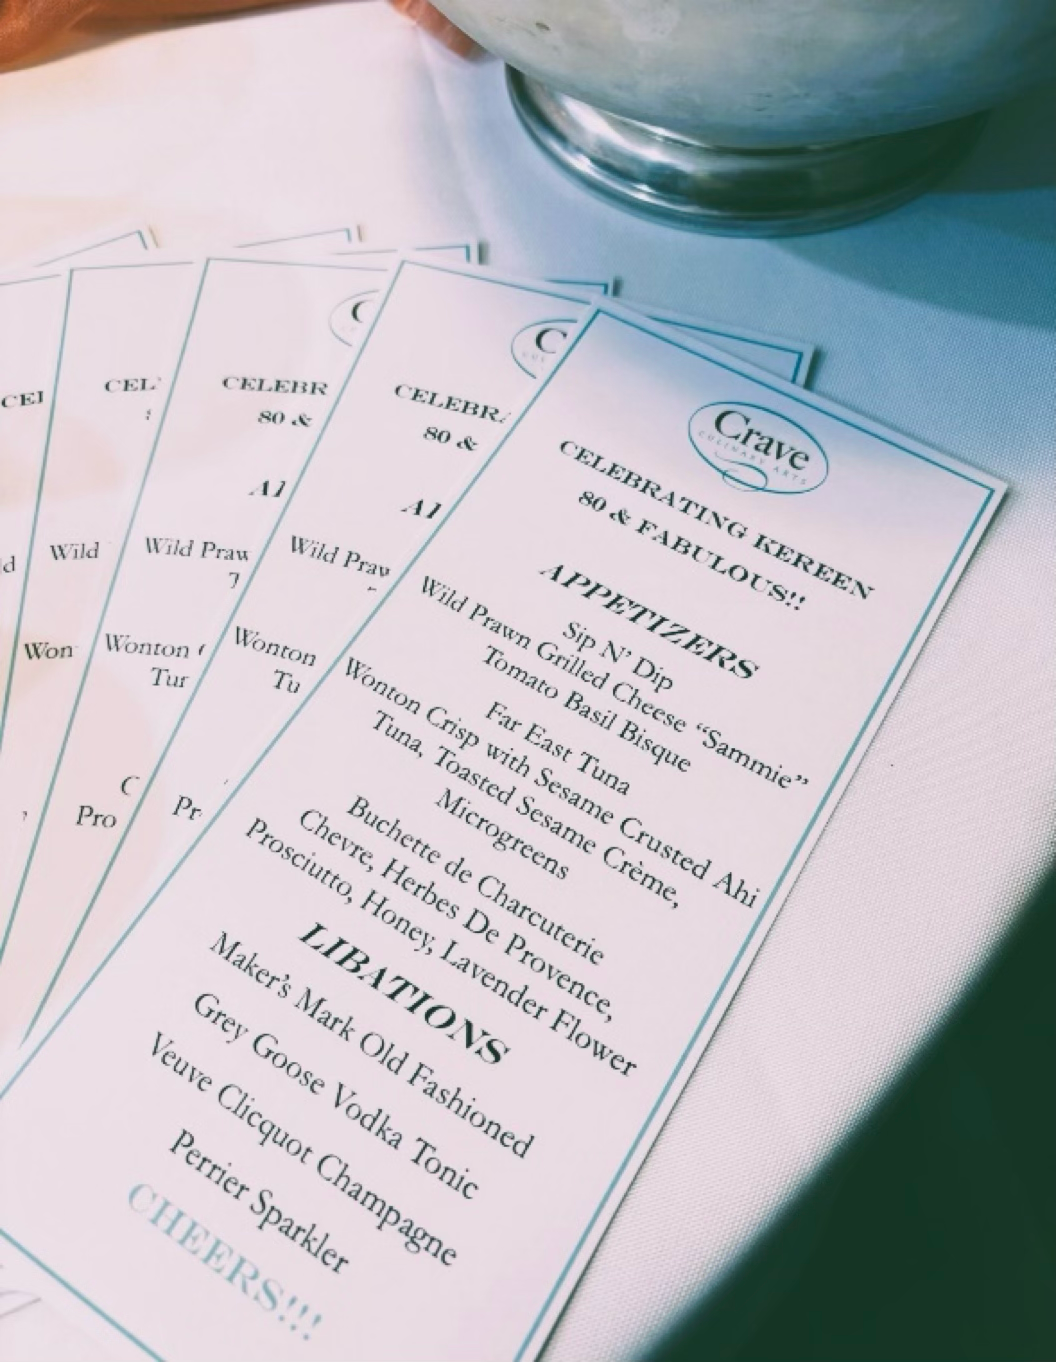 Crave
CULINARY ARTS
CELEBRATING KEREEN
80 & FABULOUS!!
APPETIZERS
Sip N' Dip
Wild Prawn Grilled Cheese “Sammie”
Tomato Basil Bisque
Far East Tuna
Wonton Crisp with Sesame Crusted Ahi
Tuna, Toasted Sesame Crème,
Microgreens
Buchette de Charcuterie
Chevre, Herbes De Provence,
Prosciutto, Honey, Lavender Flower
LIBATIONS
Maker's Mark Old Fashioned
Grey Goose Vodka Tonic
Veuve Clicquot Champagne
Perrier Sparkler
CHEERS!!!
C
CELEBRA
80 &
Wild Praw
Wonton
Tu
Pr
C
CELEBR
80 &
Wild Praw
T
Wonton
Tur
Pro
CEL
Wild
Won
CEL